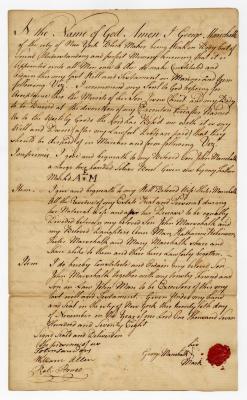 In the Name of God Amen I George Marshall
of the city of New York Block Maker being Weak in Body but of
Sound and perfect Memory knowing that it is
appointed unto all Men once to die make Constitute and
this my Last Will and Testament in Manner and form
following Viz. I recommend my Soul to God hoping for
the Merits of his Son and my Body
to be Buried at the discretion of my Executors hereafter Named
As to the Worldly Goods the Lord has Blest me with it is my
Will and Desire (after my Lawful Debts are paid) that they
Should be disposed of in Manner and form following Viz.
Imprimis I give and bequeath to my Beloved Son John Marshall
a large two handled Silver Bowl
Marked A * M
Item I give and bequeath to my Well Beloved Wife Marshall
All the of my Estate Real and Personal during
her Natural life and after her Decease to be equally
Divided between my beloved Son John Marshall and
my Beloved Daughters
Marshall and Mary Marshall Share and
Share alike to them and their Heirs lawfully
Item I do hereby Constitute and Appoint my beloved Son
John Marshall together with my loving friend and
Son in Law John Man to be Executors of this my
last will and Testament. Given under my hand
and Seal in the city of New York this twenty fifth day
of November in the Year of our Lord One thousand seven
Hundred and seventy Eight
Sign'd Seal'd and Deliver'd
the presence of us
William Allen
his
George Marshall
Mark